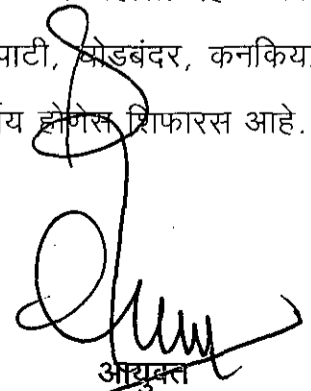 पाटी, घोडबंदर, कनकिया
य होणेस शिफारस आहे.
आयुक्त